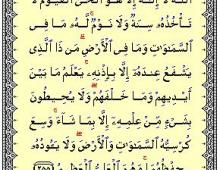 ٱللَّهُ لَآ إِلَٰهَ إِلَّا هُوَ ٱلْحَىُّ ٱلْقَيُّومُ لَا
تَأْخُذُهُۥ سِنَةٌ وَلَا نَوْمٌ لَّهُۥ مَا فِى
ٱلسَّمَٰوَٰتِ وَمَا فِى ٱلْأَرْضِ مَن ذَا ٱلَّذِى
يَشْفَعُ عِندَهُۥٓ إِلَّا بِإِذْنِهِۦ يَعْلَمُ مَا بَيْنَ
أَيْدِيهِمْ وَمَا خَلْفَهُمْ وَلَا يُحِيطُونَ
بِشَىْءٍ مِّنْ عِلْمِهِۦٓ إِلَّا بِمَا شَآءَ وَسِعَ
كُرْسِيُّهُ ٱلسَّمَٰوَٰتِ وَٱلْأَرْضَ وَلَا يَـُٔودُهُۥ
حِفْظُهُمَا وَهُوَ ٱلْعَلِىُّ ٱلْعَظِيمُ ٢٥٥